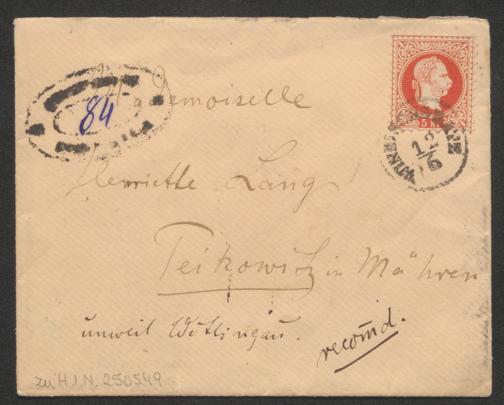 84
Mademoiselle
5 KR
12/6
Henriette Lang
Teikowitz in Mähren
unweit Wollingau.
recomd.
zu H.I.N. 250549